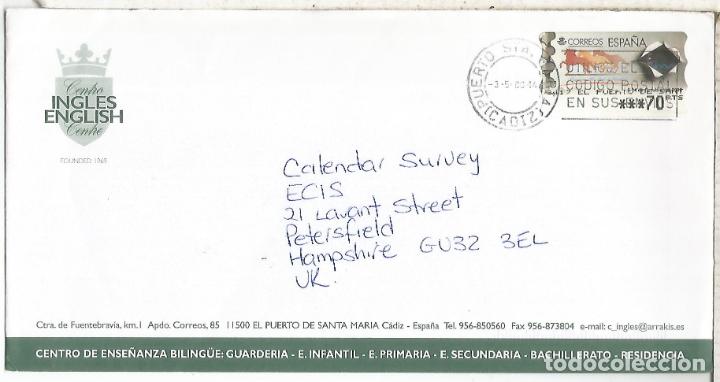 Centro
INGLES
ENGLISH
Centre
FOUNDED 1969
CORREOS ESPAÑA
PUERTO STA.
(CADIZ)
CODIGO POSTAL
EN SUS
EL PUERTO DE SANT
***70
PTS
Calendar Survey
ECIS
21 Lavant Street
Petersfield
Hampshire GU32 3EL
UK.
Ctra. de Fuentebravía, km.1 Apdo. Correos, 85 11500 EL PUERTO DE SANTA MARIA Cádiz - España Tel. 956-850560 Fax 956-873804 e-mail: c_ingles@arrakis.es
CENTRO DE ENSEÑANZA BILINGÜE: GUARDERIA - E. INFANTIL - E. PRIMARIA - E. SECUNDARIA - BACHILLERATO - RESIDENCIA
todocoleccion